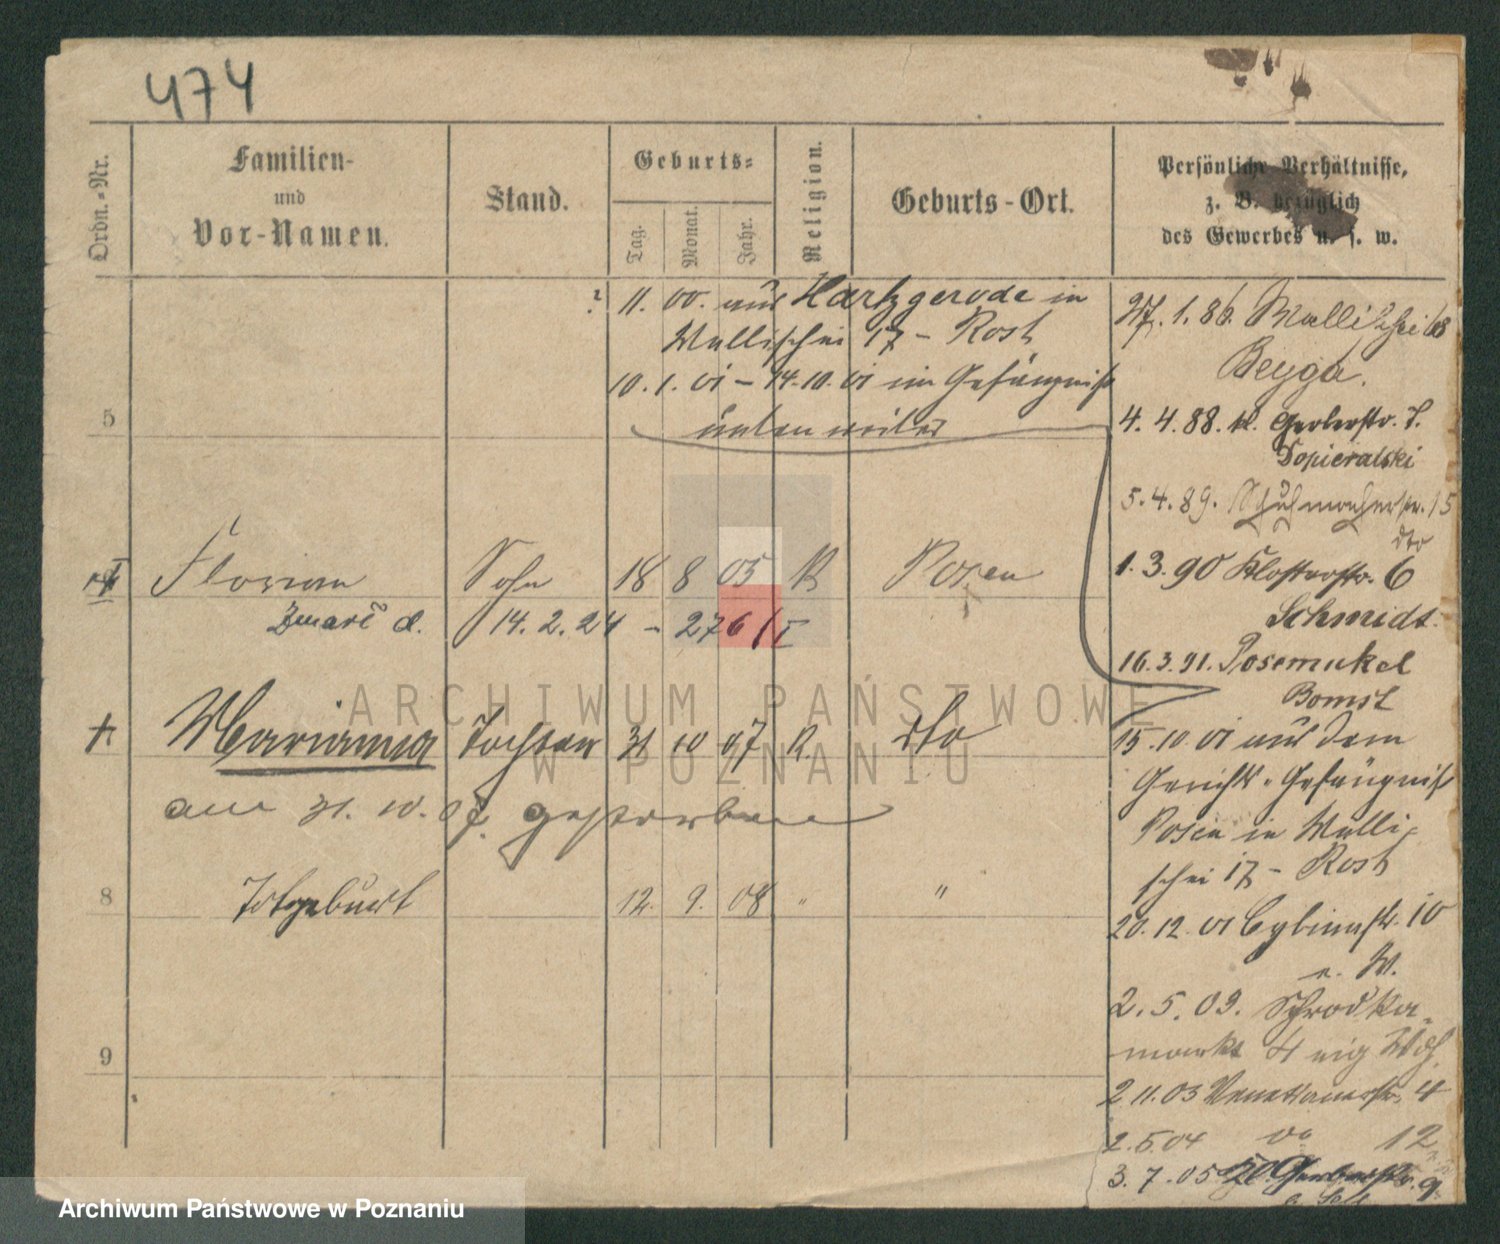 474
Ordn.-Nr.
Familien-
und
Vor-Namen.
Stand.
Geburts-
Tag.
Monat.
Jahr.
Religion.
Geburts-Ort.
Persönliche Verhältnisse,
z. B. bezüglich
des Gewerbes u. s. w.
? 11. 00. aus Hartzgerode in
Wallischei 17 - Rost
10.1.01 - 14.10.01 im Gefängniß
unten weiter
5
Florian Sohn 18 8 05 K Posen
Zmarł d. 14. 2. 24 - 276/I
Marianna Tochter 31 10 07 K. dto
am 31. 10. 07. gestorben
8 Totgeburt 12. 9. 08 " "
9
27. 1. 86. Wallischei 68
Beyga.
4. 4. 88. kl. Gerberstr. 7.
Topieralski
5. 4. 89. Schuhmacherstr. 15
dto
1. 3. 90 Klosterstr. 6
Schmidt.
16. 3. 91. Posemukel
Bomst
15. 10. 01 aus dem
Gerichts-Gefängniß
Posen in Walli-
schei 17 - Rost
20. 12. 01 Cybinastr. 10
e. W.
2. 5. 03. Schrodka-
markt 4 eig Whg.
2. 11. 03 Venetianerstr. 4
2. 5. 04 do 12
3. 7. 05 Gerberstr. 9
ARCHIWUM PAŃSTWOWE
W POZNANIU
Archiwum Państwowe w Poznaniu